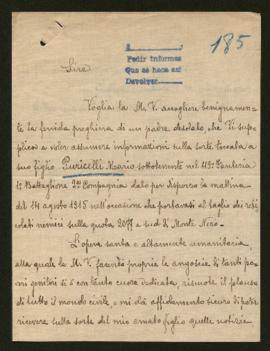 185
A
Pedir informes
Que se hace así
Devolver
Sire
Voglia la M. V. accogliere benignamen-
te la fervida preghiera di un padre desolato, che Vi sup-
plica a voler assumere informazioni sulla sorte toccata a
suo figlio Puricelli Mario sottotenente nel 112º Fanteria
Iº Battaglione 2ª Compagnia dato per disperso la mattina
del 14 agosto 1915 nell'occasione che portavasi al taglio dei reti-
colati nemici sulla quota 2077 a sud di Monte Nero.
L'opera santa e altamente umanitaria,
alla quale la M. V. facendo propria le angoscie di tanti po-
veri genitori si è con tanto cuore dedicata, riscuote il plauso
di tutto il mondo civile, e mi dà affidamento sicuro di poter
ricevere sulla sorte del mio amato figlio quelle notizie